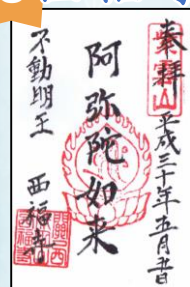 奉拝 平成三十年五月廿日
阿弥陀如来
不動明王 西福寺